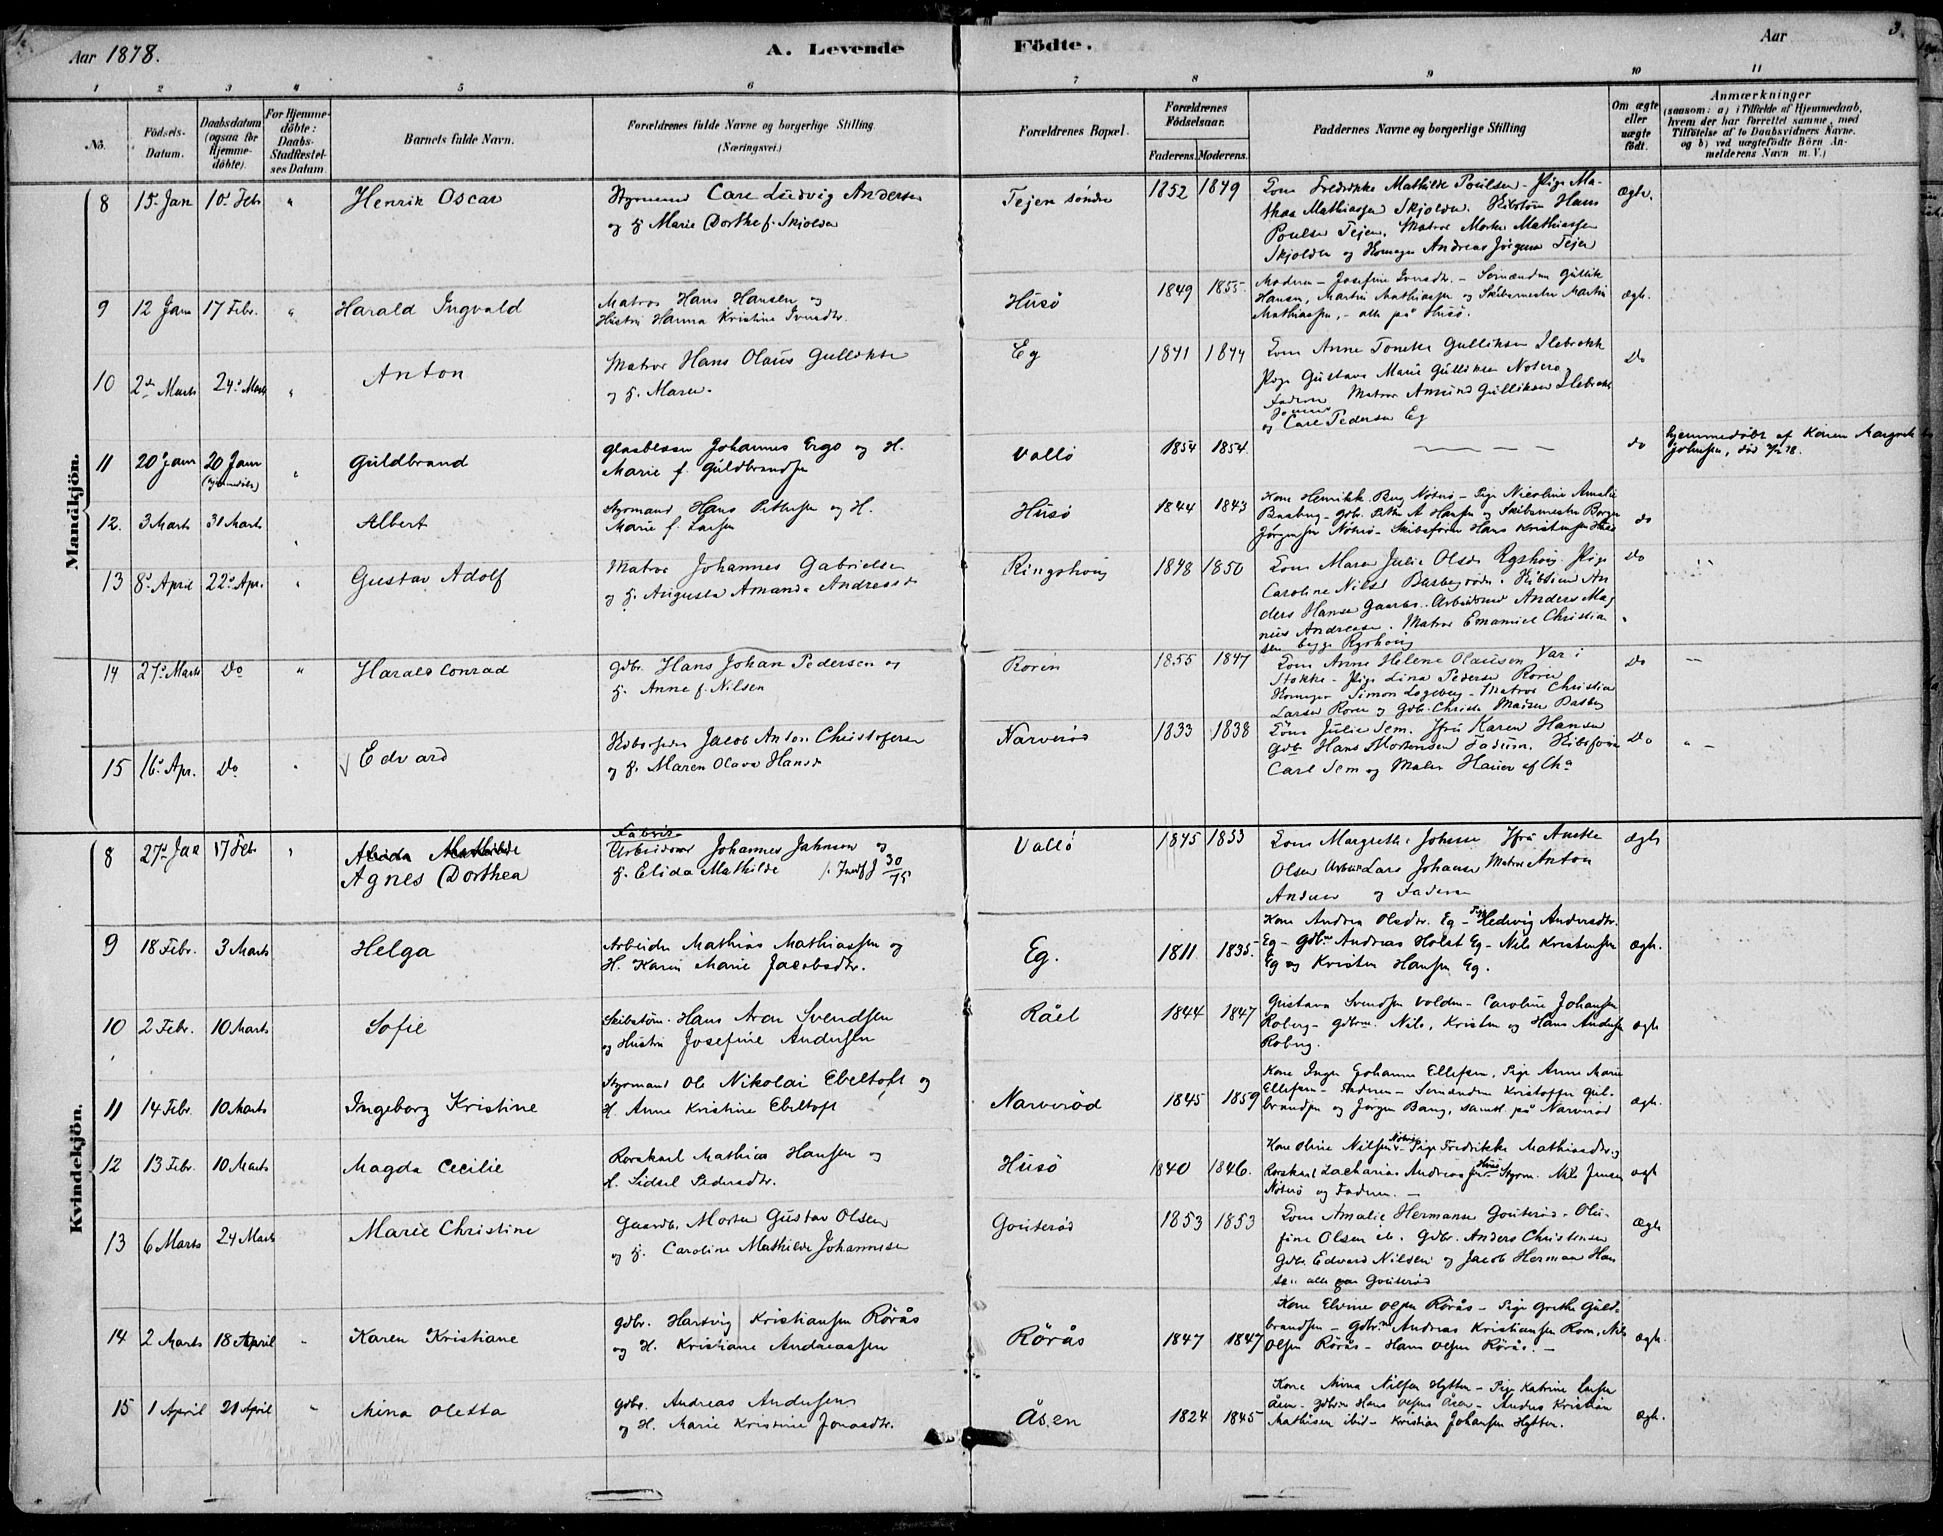 Aar 1878.
A. Levende
Födte.
Aar
3.
1 2 3 4 5 6 7 8 9 10 11
No.
Födsels-
Datum.
Daabsdatum
(ogsaa for
Hjemme-
döbte).
For Hjemme-
döbte:
Daabs-
Stadfæstel-
ses Datum
Barnets fulde Navn.
Forældrenes fulde Navne og borgerlige Stilling
(Næringsvei.)
Forældrenes Bopæl.
Forældrenes
Födselsaar.
Faderens. Moderens.
Faddernes Navne og borgerlige Stilling
Om ægte
eller
uægte
födt.
Anmærkninger
(saasom: a) i Tilfælde af Hjemmedaab,
hvem der har forrettet samme, med
Tilföielse af to Daabsvidners Navne.
og b) ved uægtefödte Börn An-
melderens Navn m. V.)
Mandkjön.
8 15 Jan 10 Feb " Henrik Oscar
Styrmand Carl Ludvig Andersen
og H. Marie Dorthe f. Skjolden
Tejen søndre 1852 1849
Fredrikke Mathilde Poulsen - Pige Ma-
thea Mathiassen Skjolden. Hans
Poulsen Tejen, Matros Morten Mathiassen
Skjolden og Andreas Jörgensen Tejen
ægte.
9 12 Jan 17 Febr. " Harald Ingvald
Matros Hans Hansen og
Hustru Hanna Kristine
Husö 1849 1855
Moderen - Josefine - Sømændene Gullik
Hansen, Martin Mathiassen og Skibsmester Martin
Mathiassen, - alle på Husö.
ægte.
10 2 Marts 24 Marts " Anton
Matros Hans Olaus Gulliksen
og H. Maren.
Eg 1841 1844
Anne Tonette Gulliksen Ilebrekk
Pige Gustava Marie Gulliksen Nøterö,
Faderen Matros Amund Gulliksen Ilebrekk
og Carl Pedersen Eg
Do
11 20 Jan 20 Jan " Guldbrand
(hjemmedöbt)
Glasblæser Johannes Ergo og H.
Marie f. Guldbrandsen
Vallö 1854 1854.
do
hjemmedöbt af Karen Margrethe
Johnsen, död
12. 3 Marts 31 Marts " Albert
Styrmand Hans Pettersen og H.
Marie f. Larsen
Husö 1844 1843
Kone Henrikke Berg Nøterö - Pige Nicoline Amalie
Basberg - Gdbr. A Hansen og Skibsmester Borger
Jørgensen Nøterö - Skibsförer Hans Kristensen Husö
do
13 8 April 22 Apr. " Gustav Adolf
Matros Johannes Gabrielsen
og H. Augusta Amanda Andreasd
Ringshoug 1848 1850
Maren Julie Olsen Pige
Caroline Nilsd An-
ders Hansen Arbeidsmd Anders Mag-
nus Andreasen. Matros Emanuel Christian
sen begge
Do
14 27 Marts Do " Harald Conrad
Gdbr. Hans Johan Pedersen og
H. Anne f. Nilsen
Roren 1855 1847
Anne Helene Olausen Var i
Stokke - Pige Lina Pedersen Roren
Simon Løgeberg - Matros Christian
Larsen Roren og Gdbr. Madsen Basberg
Do
15 16 Apr. Do " Edvard
Jacob Anton Christofersen
og H. Maren Olava Hansd
Narveröd 1833 1838
Julie Sem. Jfru Karen Hansen
Gdb Hans Mortensen Fadum.
Carl Sem og Maler Hauer af Cha
Do
Kvindekjön.
8 27 Jan 17 Feb " Alida Mathilde
Agnes Dorthea
Fabrik-
Arbeider Johannes Jahnsen og
H. Elida Mathilde 30/75
Vallö 1845 1853
Margrethe Johnsen Jfru Anette
Olsen Lars Johansen Matros Anton
Andersen og Faderen
Ægte
9 18 Febr. 3 Marts Helga
Arbeider Mathias Mathiassen og
H. Karin Marie Jacobsdtr.
Eg. 1811 1835.
Kone Andrea Olsdtr. Eg - Pige Hedevig Andersdtr.
Eg - Gdbr. Andreas Holst Eg - Nils Kristensen
Eg og Kristen Hansen Eg.
Ægte.
10 2 Febr. 10 Marts Sofie
Skibstöm. Hans Aron Svendsen
og Hustru Josefine Andersen
Råel 1844 1847
Gustava Svendsen Volden - Caroline Johansen
Roberg - Gdbrn. Nils, Kristen og Hans Andersen
Roberg.
Ægte
11 14 Febr. 10 Marts Ingeborg Kristine
Styrmand Ole Nikolai Ebeltoft og
H. Anne Kristine Ebeltoft
Narveröd 1845 1859
Kone Inger Johanne Ellefsen, Pige Anne Marie
Ellefsen - Faderen - Sømændene Kristoffer Gul-
brandsen og Jørgen Bang, samtl. på Narveröd
Ægte.
12 13 Febr. 10 Marts Magda Cecilie
Rorskarl Mathias Hansen og
H. Sidsel Pedersdtr.
Husö 1840 1846.
Kone Oline Nilsen Nøterö - Pige Fredrikke Mathiasdtr.,
Rorskarl Zacharias Andreassen Husö - Styrm. Nils Jensen
Nøterö og Faderen. -
ægte
13 6 Marts 24 Marts Marie Christine
Gaardb. Morten Gustav Olsen
og H. Caroline Mathilde Johannesen
Gouteröd 1853 1853
Amalie Hermansen Gouteröd - Olu-
fine Olsen Gdbr. Anders Christensen
Gdbr. Edvard Nilsen og Jacob Herman Han
sen alle paa Gouteröd
Ægte
14 2 Marts 18 April " Karen Kristiane
Gdbr. Hartvig Kristiansen Rörås
og H. Kristiane Andreassen
Rörås 1847 1847
Kone Elvine Olsen Rörås - Pige Grethe Guld-
brandsen - Gdbr. Andreas Kristiansen Rom, Nils
Olsen Rörås - Hans Olsen Rörås. -
Ægte.
15 1 April 21 April " Mina Oletta
Gdbr. Andreas Andersen
og H. Marie Kristine Jonasdtr.
Åsen 1824 1845
Kone Mina Nilsen Hytten - Pige Katrine Larsen
Åsen - Gdbrn Hans Olsens Åsen - Anders Kristian
Mathisen ibid - Kristian Johansen Hytten.
Ægte.